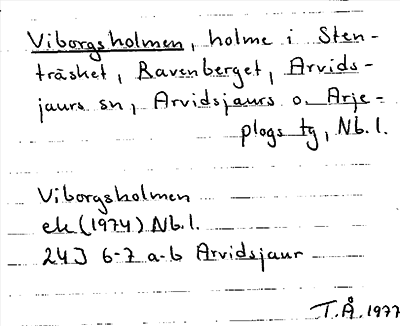 Viborgsholmen, holme i Sten-
träsket, Ravenberget, Arvids-
jaurs sn, Arvidsjaurs o. Arje-
plogs tg, Nb. l.
Viborgsholmen
ek (1974) Nb. l.
24J 6-7 a-b Arvidsjaur
T.Å. 1977